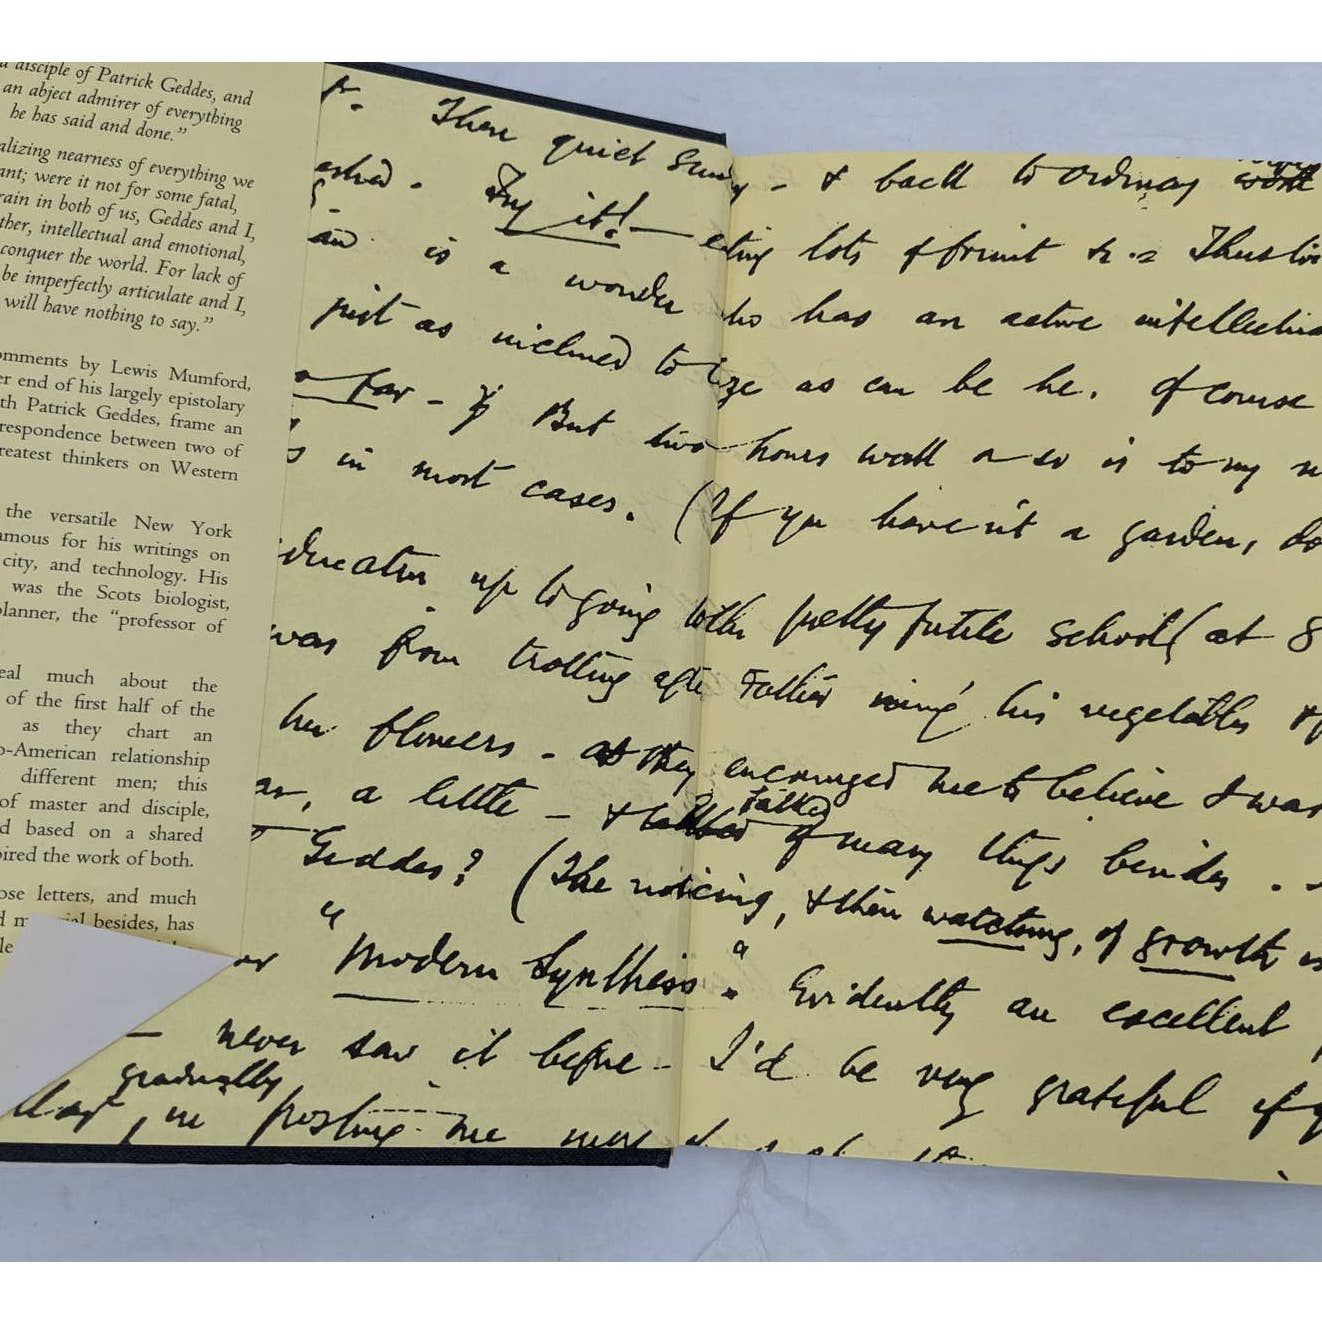 a disciple of Patrick Geddes, and
an abject admirer of everything
he has said and done."
alizing nearness of everything we
ant; were it not for some fatal,
rain in both of us, Geddes and I,
ther, intellectual and emotional,
conquer the world. For lack of
be imperfectly articulate and I,
will have nothing to say."
omments by Lewis Mumford,
er end of his largely epistolary
th Patrick Geddes, frame an
respondence between two of
reatest thinkers on Western
the versatile New York
amous for his writings on
city, and technology. His
was the Scots biologist,
planner, the "professor of
eal much about the
of the first half of the
as they chart an
o-American relationship
different men; this
of master and disciple,
d based on a shared
pired the work of both.
ose letters, and much
besides, has
Then quiet - & back to ordinary
Try it! - lots of fruit
is a wonder who has an active
just as inclined to as can be he. Of course
far - But two hours work or so is to my
in most cases. (If you haven't a garden, do
up to going to pretty futile school (at 8
was from trotting after Father his vegetables &
her flowers - as they encouraged me to believe I was
a little - & talked of many things besides.
Geddes? (The noticing, & then watching, of growth is
"Modern Synthesis". Evidently an excellent
- never saw it before - I'd be very grateful if
gradually
in posting me